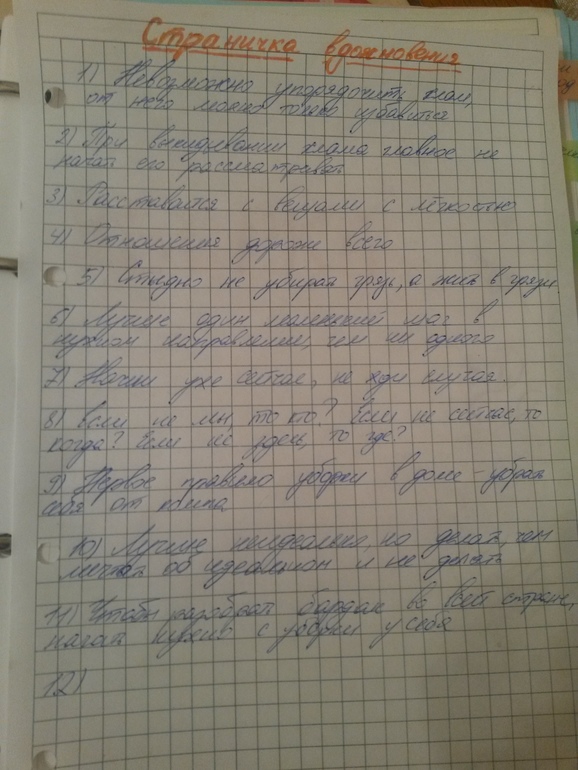 Страничка вдохновения
1) Невозможно упорядочить хлам,
от него можно только избавиться
2) При выкидывании хлама главное не
начать его рассматривать
3) Расставайся с вещами с лёгкостью
4) Отношения дороже всего
5) Стыдно не убирая грязь, а жить в грязи
6) Лучше один маленький шаг в
нужном направлении, чем ни одного
7) Начни уже сейчас, не жди случая.
8) Если не мы, то кто? Если не сейчас, то
когда? Если не здесь, то где?
9) Первое правило уборки в доме - убрать
себя от компа
10) Лучше неидеально, но делать, чем
мечтать об идеальном и не делать
11) Чтобы разобрать бардак во всей стране,
начать нужно с уборки у себя
12)